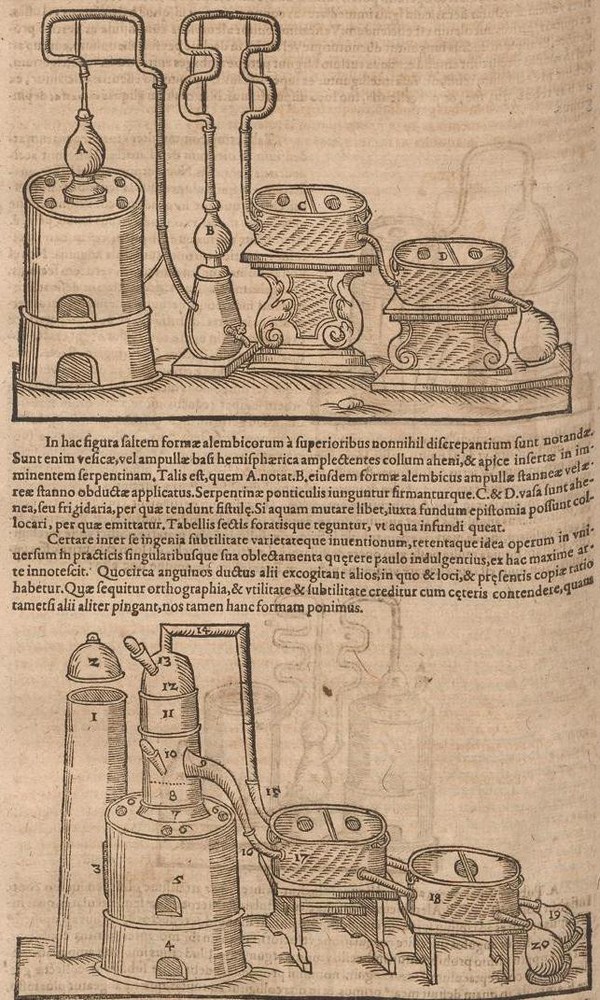 A
B
C
D
In hac figura saltem formæ alembicorum à superioribus nonnihil discrepantium sunt notandæ.
Sunt enim vesicæ, vel ampullæ basi hemisphærica amplectentes collum aheni, & apice insertæ in im-
minentem serpentinam. Talis est, quem A. notat. B, eiusdem formæ alembicus ampullæ stanneæ velæ-
reæ stanno obductæ applicatus. Serpentinæ ponticulis iunguntur firmanturque. C. & D. vasa sunt ahe-
nea, seu frigidaria, per quæ tendunt fistulę. Si aquam mutare libet, iuxta fundum epistomia possunt col-
locari, per quæ emittatur. Tabellis sectis foratisque teguntur, vt aqua infundi queat.
Certare inter se ingenia subtilitate varietateque inuentionum, retentaque idea operum in vni-
uersum in practicis singularibusque sua oblectamenta quęrere paulo indulgentius, ex hac maxime ar-
te innotescit. Quocirca anguinos ductus alii excogitant alios, in quo & loci, & pręsentis copiæ ratio
habetur. Quæ sequitur orthographia, & vtilitate & subtilitate creditur cum cęteris contendere, quam
tametsi alii aliter pingant, nos tamen hanc formam ponimus.
14
2
13
12
1
11
10
9
8
15
7
6
6
16
17
3
5
18
19
4
20